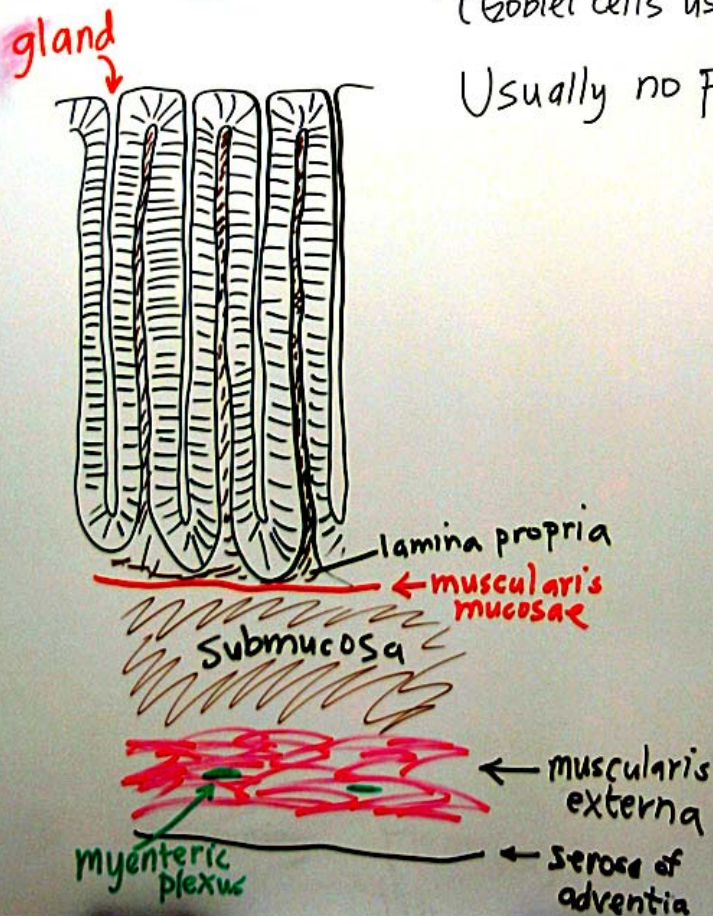 (Goblet cells us
gland
Usually no P
lamina propria
muscularis
mucosae
Submucosa
muscularis
externa
myenteric
plexus
serosa of
adventia